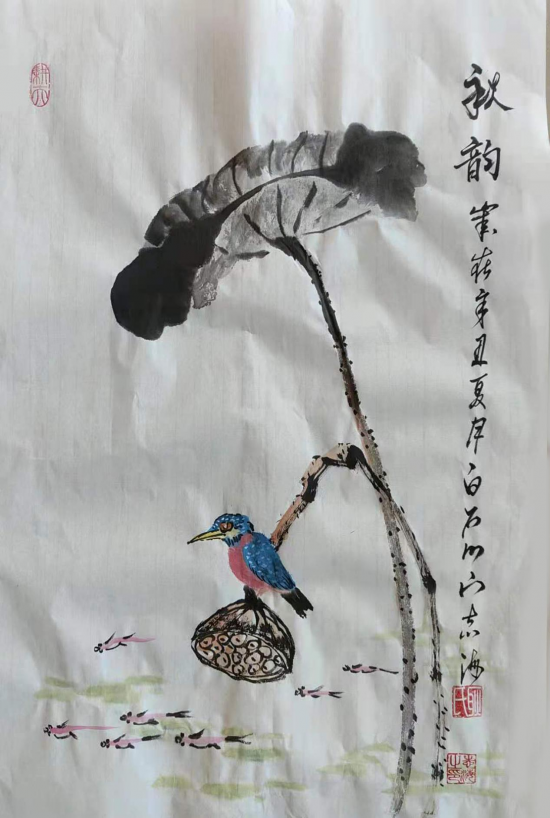 秋韵 岁在辛丑夏月白石门下志海